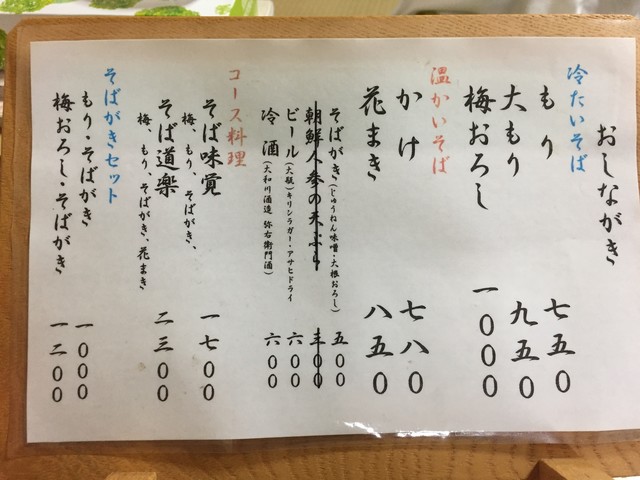 おしながき
冷たいそば
もり 七五0
大もり 九五0
梅おろし 一000
温かいそば
かけ 七八0
花まき 八五0
そばがき(じゅうねん味噌・大根おろし) 五00
朝鮮人参の天ぷら
ビール(大瓶)キリンラガー・アサヒドライ 六00
冷酒(大和川酒造 弥右衛門酒) 六00
コース料理
そば味覚 一七00
梅、もり、そばがき、
そば道楽 二三00
梅、もり、そばがき、花まき
そばがきセット
もり・そばがき 一000
梅おろし・そばがき 一二00